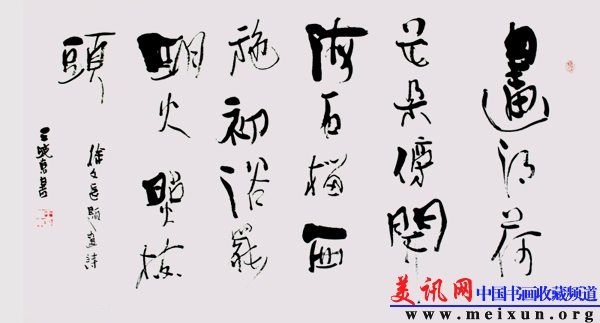 畫得荷
花朵傍開
海石榴西
施初浴罷
明火照梳
頭
徐文長題畫詩
王書
美讯网 中国书画收藏频道
www.meixun.org